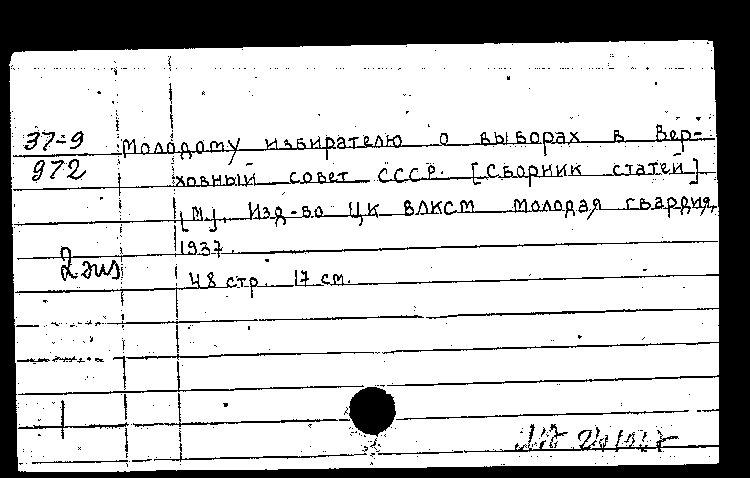 37-9
972
Молодому избирателю о выборах в Вер-
ховный совет СССР. [Сборник статей]
[М], Изд-во ЦК ВЛКСМ Молодая гвардия,
1937.
2 экз
48 стр. 17 см.